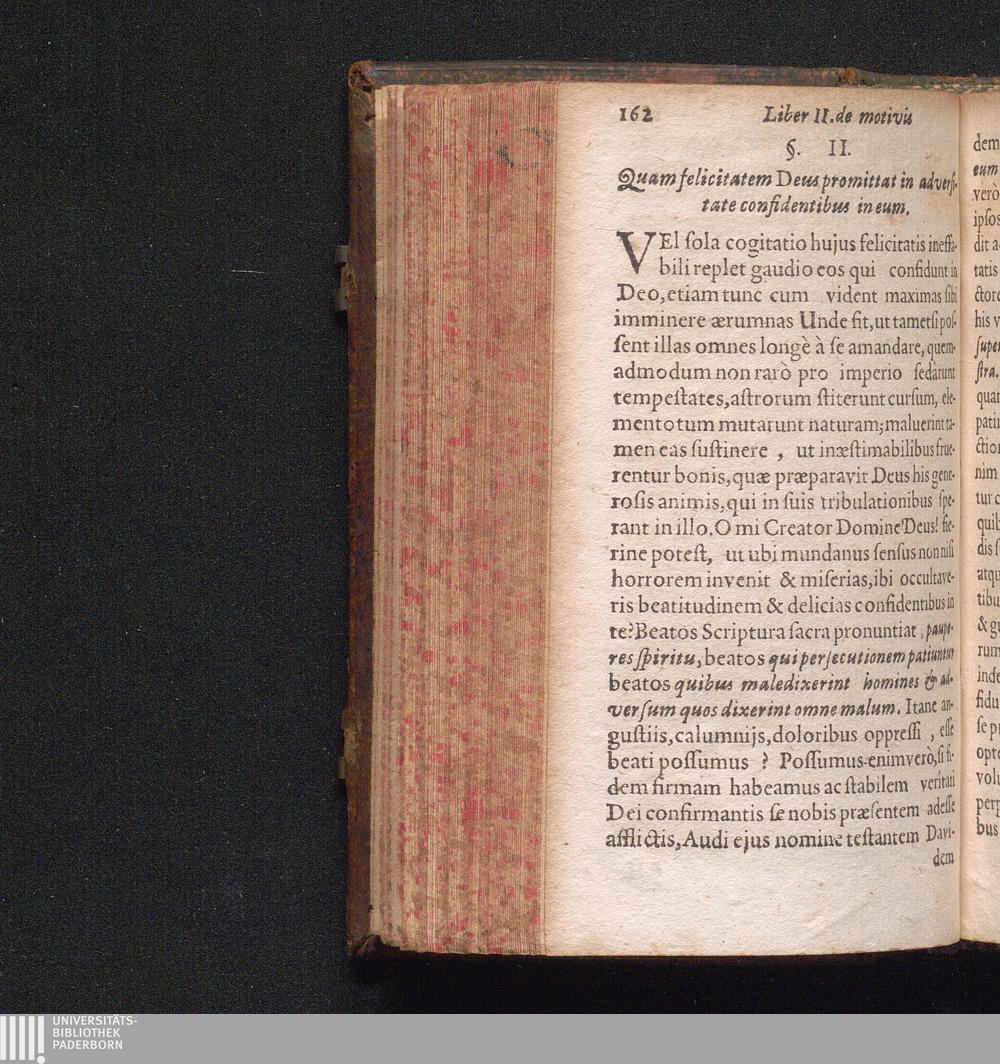 162 Liber II. de motivis
§. II.
Quam felicitatem Deus promittat in adversi-
tate confidentibus in eum.
VEl ſola cogitatio hujus felicitatis ineffa-
bili replet gaudio eos qui confidunt in
Deo, etiam tunc cum vident maximas ſibi
imminere ærumnas Unde fit, ut tametſi poſ-
ſent illas omnes longè à ſe amandare, quem-
admodum non rarò pro imperio ſedârunt
tempeſtates, aſtrorum ſtiterunt curſum, ele-
mentotum mutarunt naturam; maluerint ta-
men eas ſuſtinere , ut inæſtimabilibus frue-
rentur bonis, quæ præparavit Deus his gene-
roſis animis, qui in ſuis tribulationibus ſpe-
rant in illo. O mi Creator Domine Deus! fie-
rine poteſt, ut ubi mundanus ſenſus non niſi
horrorem invenit & miſerias, ibi occultave-
ris beatitudinem & delicias confidentibus in
te? Beatos Scriptura ſacra pronuntiat, paupe-
res ſpiritu, beatos qui perſecutionem patiuntur
beatos quibus maledixerint homines & ad-
verſum quos dixerint omne malum. Itane an-
guſtiis, calumnijs, doloribus oppreſſi , eſſe
beati poſſumus ? Poſſumus enimverò, ſi fi-
dem firmam habeamus ac ſtabilem veritati
Dei confirmantis ſe nobis præſentem adeſſe
afflictis, Audi ejus nomine teſtantem Davi-
dem
dem
eum
verò
ipſos
dit a
tatis
ctor
his v
ſuper
ſtra.
quan
patin
ction
nim
tur c
quib
dis ſ
atqu
tibu
& gu
rum
inde
fidu
ſe pr
opte
volu
perp
bus
UNIVERSITÄTS-
BIBLIOTHEK
PADERBORN